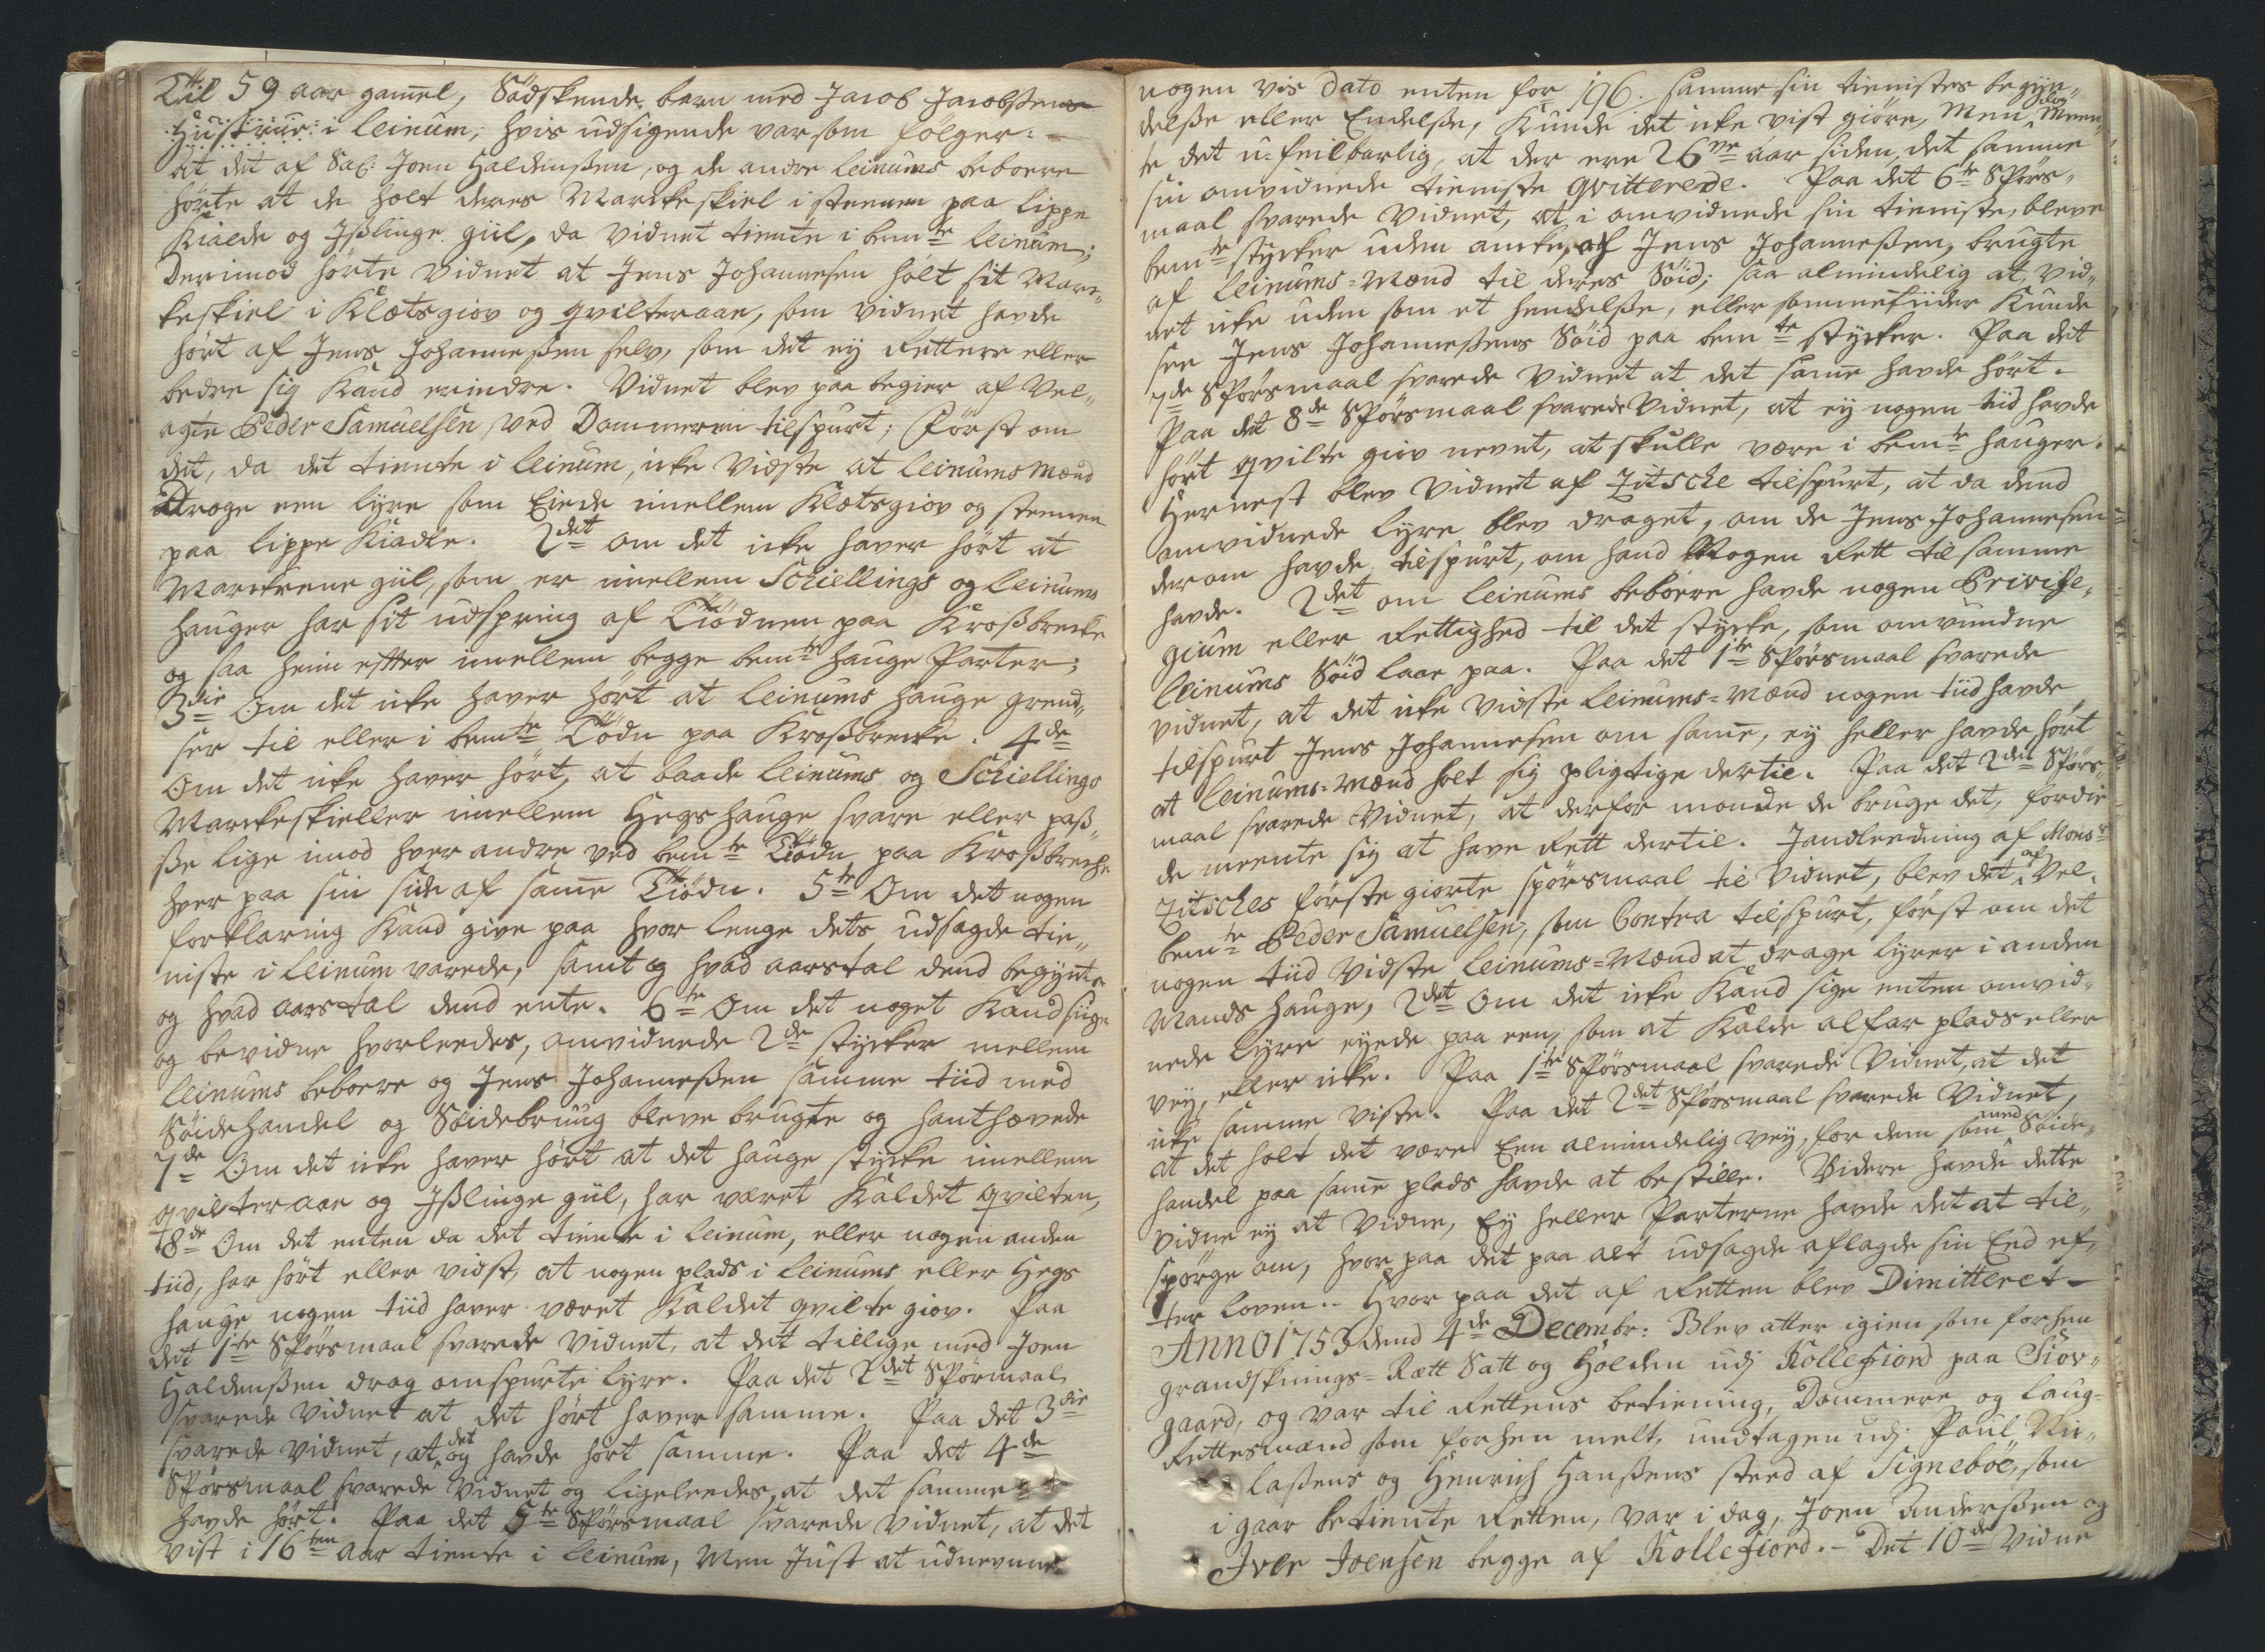 Til 59 aar gamel, Södskende barn med Jacob Jacobsens
Hustrue i Leinum, hvis udsigende var som fölger:
at det af Sal: Joen Haldensßen, og de andre Leinums beboere
hörte at de holt deres Marckeskiel i steenen paa Lippe
Kielde og Ißlinge giil, da vidnet tiente i bemte Leinum;
Derimod hörte vidnet at Jens Johannesen holt sit Mar¬
keskiel i Klætsgiov og qvilteraae, som vidnet havde
hört af Jens Johanneßen selv, som det ey rettere eller
bedre sig Kand erindre. Vidnet blev paa begier af Vel¬
agte Peder Samuelsen, ved Dommeren tilspurt; Först om
det, da det tiente i Leinum, icke vidste at Leinums Mænd
droge een lyre som Eiede imellem Klætsgiov og steenen
paa Lippe Kiadle. 2det om det icke haver hört at
Marckene giil, som er imellem Schiellings og Leinums
Hauger har sit udspring af Tiödnen paa Kroßbrecke
og saa heim efter imellem begge bemte Hauge Parter;
3die Om det icke haver hört at Leinums Hauge grend¬
ser til eller i bemte Tiödn paa Kroßbrecke. 4de
Om det icke haver hört, at baade Leinums og Schiellings
Marckeskieller imellem Hegshauge svare eller paß¬
ße lige imod hver andre ved bemte Tiödn paa Kroßbreche
hver paa sin side af same Tiödn. 5te Om det nogen
forklaring Kand give paa hvor lenge dets udsagde tie¬
niste i Leinum varede, samt og hvad aarstal dend begynte
og hvad aarstal dend ente. 6te Om det noget Kand sige
og bevidne hvorleedes, omvidnede 2de stycker mellem
Leinums beboere og Jens Johanneßen samme tiid med
Söidehandel og Söidebring bleve brugte og hanthævede
7de Om det icke haver hört at det Hauge stycke imellem
qvilteraae og Ißlinge giil, har været Kaldet qvilten,
8de Om det enten da det tiente i Leinum, eller nogen anden
tiid, har hört eller vidst, at nogen plads i Leinums eller Hegs
Hauge nogen tiid haver været Kaldet qvilte giov. Paa
det 1te Spörsmaal svarede vidnet, at det tillige med Joen
Haldensßen drog omspurte lyre. Paa det 2det Spörmaal
svarede vidnet at det hört haver samme. Paa det 3die
svarede vidnet, at det og havde hört samme. Paa det 4de
Spörsmaal svarede vidnet og ligeleedes, at det samme
havde hört. Paa det 5te Spörsmaal svarede vidnet, at det
vist i 16ten aar tiente i Leinum, Men Just at udnevne
nogen vis Dato enten for 196. samme sin tienistes begyn¬
delße eller Endelße, Kunde det icke vist giöre, Men dog meen¬
te det u=feilbarlig, at der ere 26ve aar siden, det samme
sin omvidnede tieniste qvitterede. Paa det 6te Spörs¬
maal svarede vidnet, at i omvidnede sin tieniste, bleve
bemte stycker uden ancke, af Jens Johanneßen, brugte
af Leinums=Mænd til deres Söid; saa almindelig at vid¬
net icke uden som et hendelße, eller sommetiider Kunde
see Jens Johanneßens Söid paa bemte stycker. Paa det
7de Spörsmaal svarede vidnet at det same havde hört.
Paa det 8de Spörsmaal svarede vidnet, at ey nogen tiid havde
hört qvilte giov nevnt, at skulle være i bemte Hauger.
Hernest blev vidnet af Zitsche tilspurt, at da dend
omvidnede lyre blev draget, om de Jens Johannesen
derom havde tilspurt, om hand Nogen Rett til samme
havde. 2det om Leinums beboere havde nogen Privile¬
gium eller Rettighed til det stycke, som omvundne
Leinums Söid laae paa. Paa det 1te Spörsmaal svarede
vidnet, at det icke vidste Leinums=Mænd nogen tiid havde
tilspurt Jens Johannesen om same, ey heller havde hört
at Leinums=Mænd holt sig pligtige dertil. Paa det 2det Spörs¬
maal svarede vidnet, at derfor monde de bruge det, fordie
de meente sig at have Rett dertil. I andleedning af Monsr
Zitsches förste giorte spörsmaal til vidnet, blev det af Vel¬
bemte Peder Samuelsen, som Contra tilspurt, först om det
nogen tiid vidste Leinums=Mænd at drage lyrer i anden
Mands Hauge, 2det Om det icke Kand sige enten omvid¬
nede lyre eyede paa een, som at Kalde alfar plads eller
vey, eller icke. Paa 1te Spörsmaal svarede vidnet, at det
icke samme viste. Paa det 2det Spörsmaal svarede Vidnet,
at det holt det være Een almindelig vey, for dem som med Söide¬
handel paa same plads havde at bestille. Videre havde dette
vidne ey at vidne, Ey heller Parterne havde det at til¬
spörge om, hvor paa det paa alt udsagde aflagde sin Eed ef¬
ter Loven. - Hvor paa det af Retten blev Dimitteret -
ANNO 1753 dend 4de Decembr: Blev atter igien som forhen
grandsknings=Rætt Satt og Holden udj Kollefiord paa Siov¬
gaard, og var til Rettens betiening, Dommere og Laug¬
Rettesmænd som forhen melt, undtagen udj Paul Nic¬
laßens og Henrich Hanßens steed af Signeböe, som
i gaar betiente Retten, var i dag, Joen Anderßen og
Iver Joensen begge af Kollefiord. - Det 10de Vidne